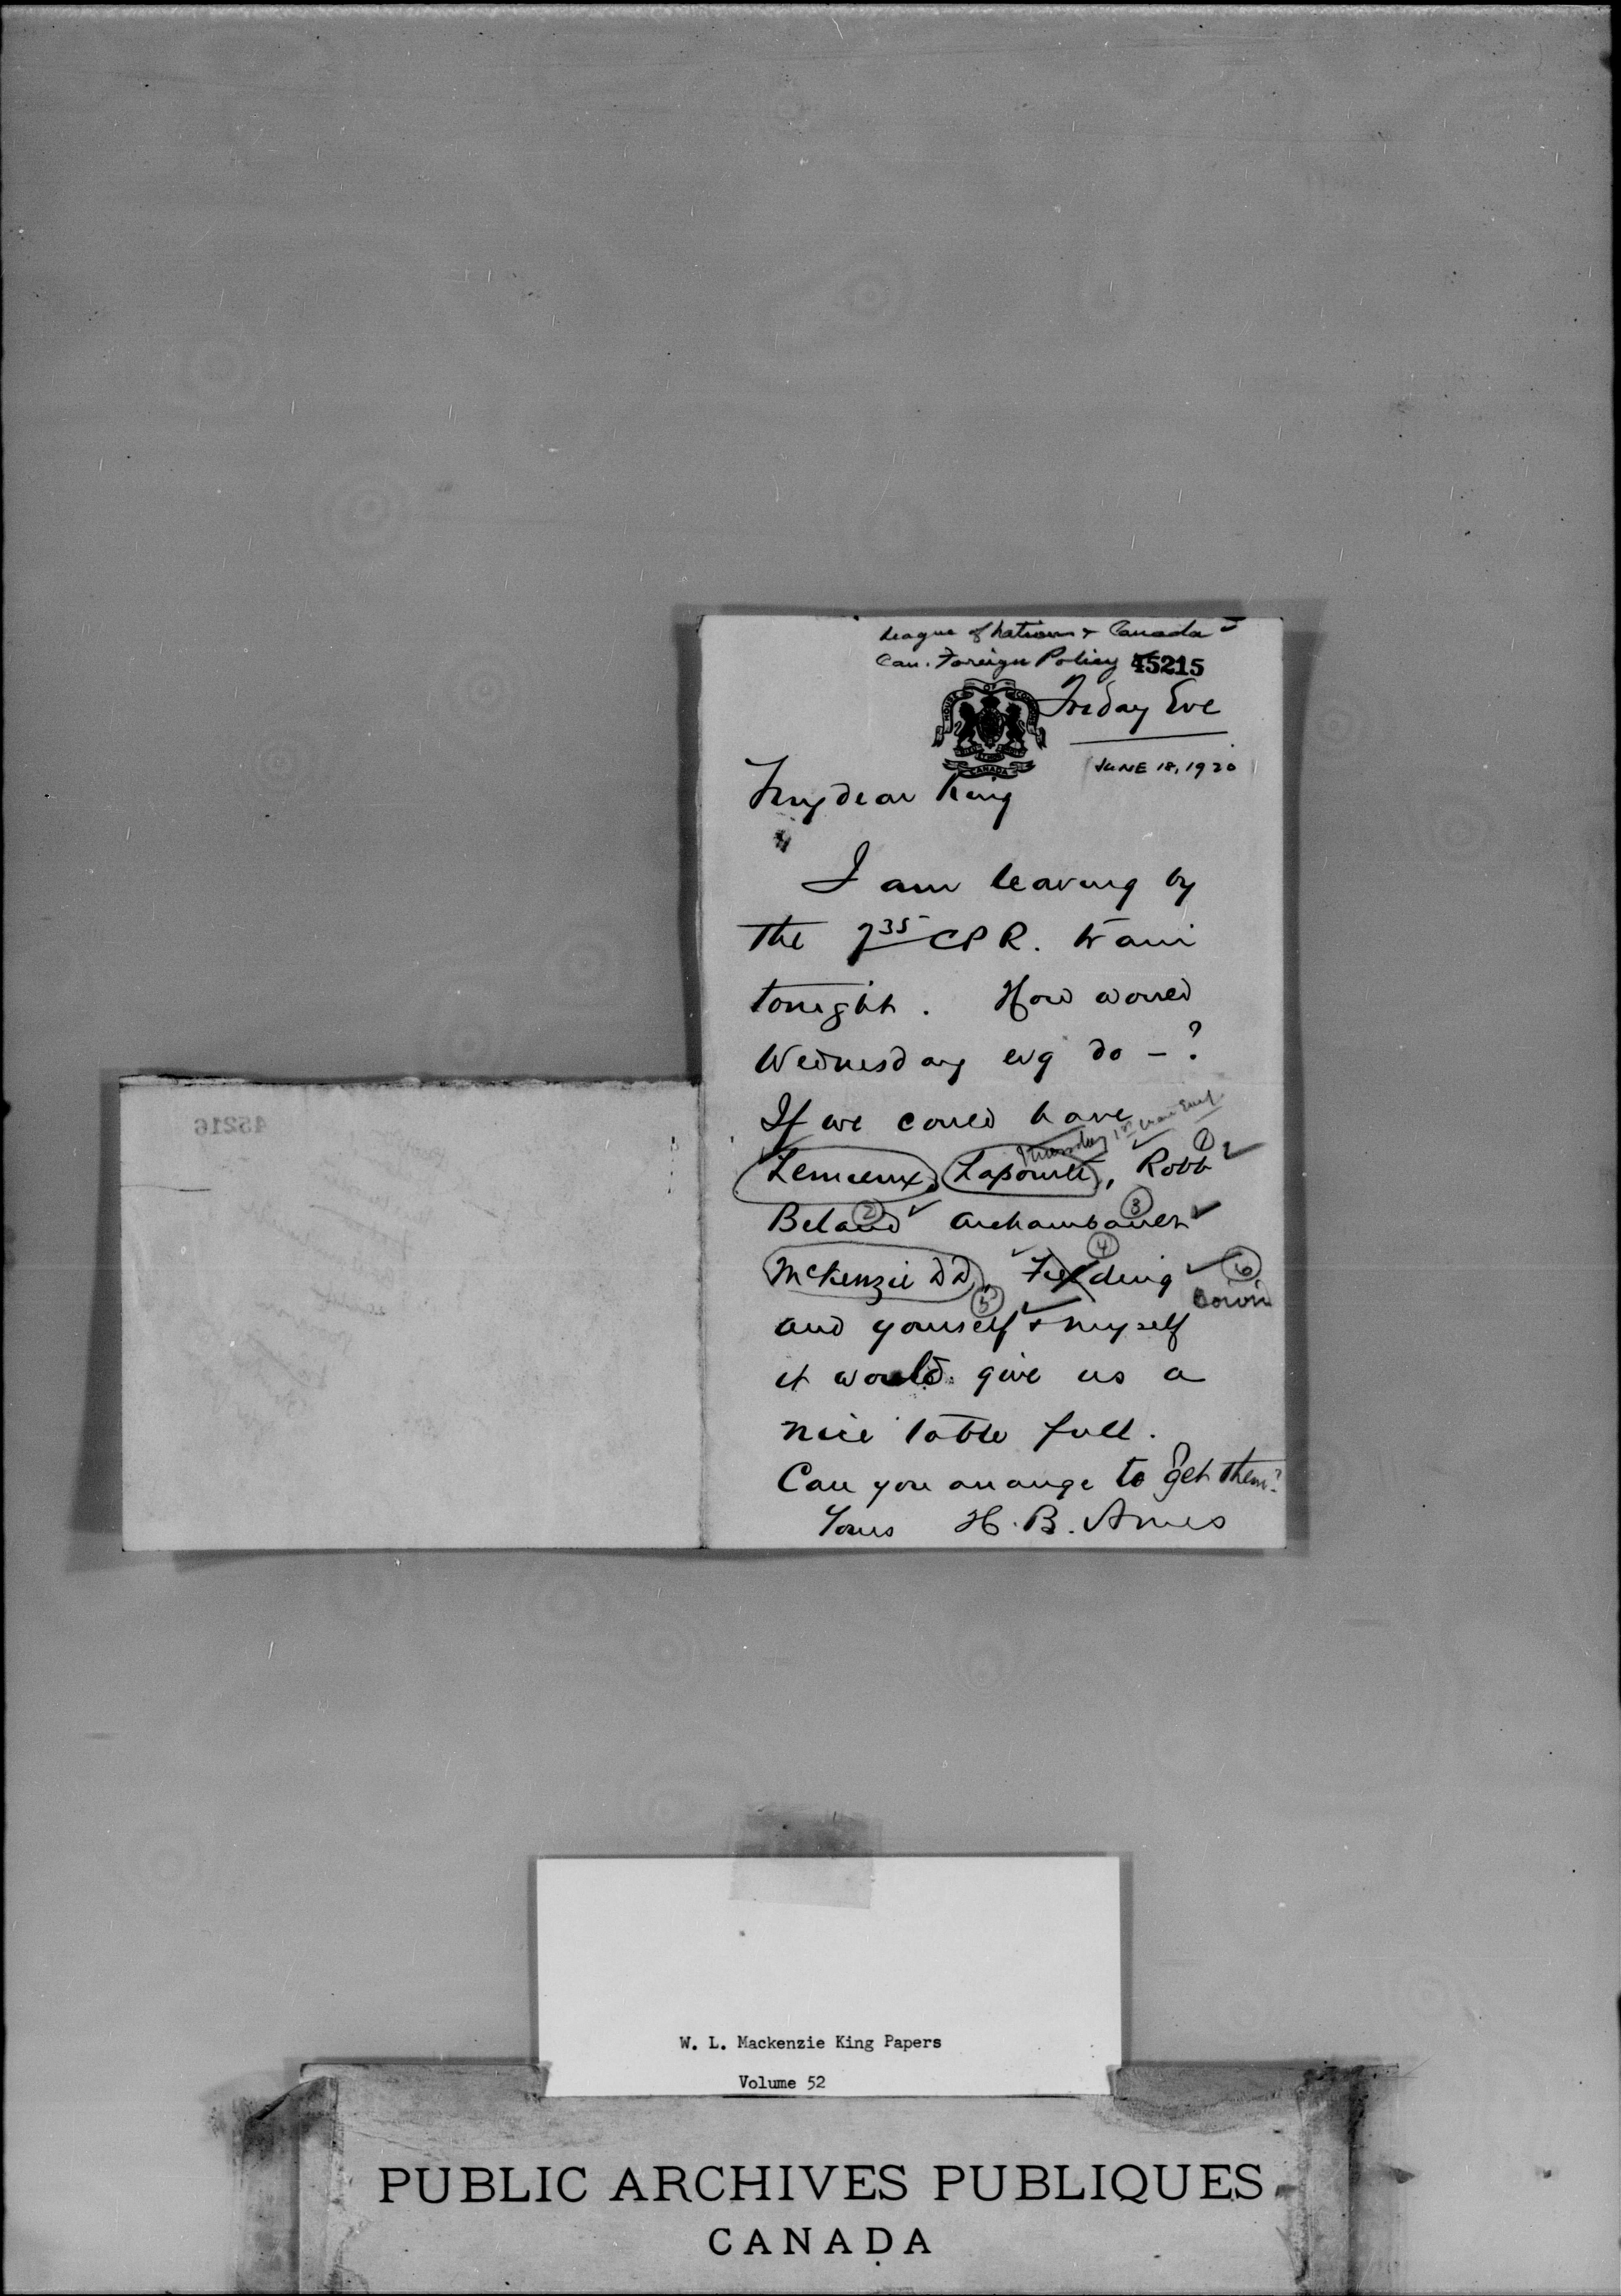 League of Nations & Canada
Can. Foreign Policy 45215
HOUSE OF COMMONS
CANADA
Friday Eve
JUNE 18, 1920
My dear King
I am leaving by
the 7 35 C P R. train
tonight. How would
Wednesday evg do - ?
If we could have
Thursday
Lemieux, Lapointe, Robb 1
Beland 2 Archambault 3
McKenzie DD, Fielding 4 6
5
and yourself & myself
it would give us a
nice table full.
Can you arrange to get them?
Yours H. B. Ames
45216
W. L. Mackenzie King Papers
Volume 52
PUBLIC ARCHIVES PUBLIQUES
CANADA